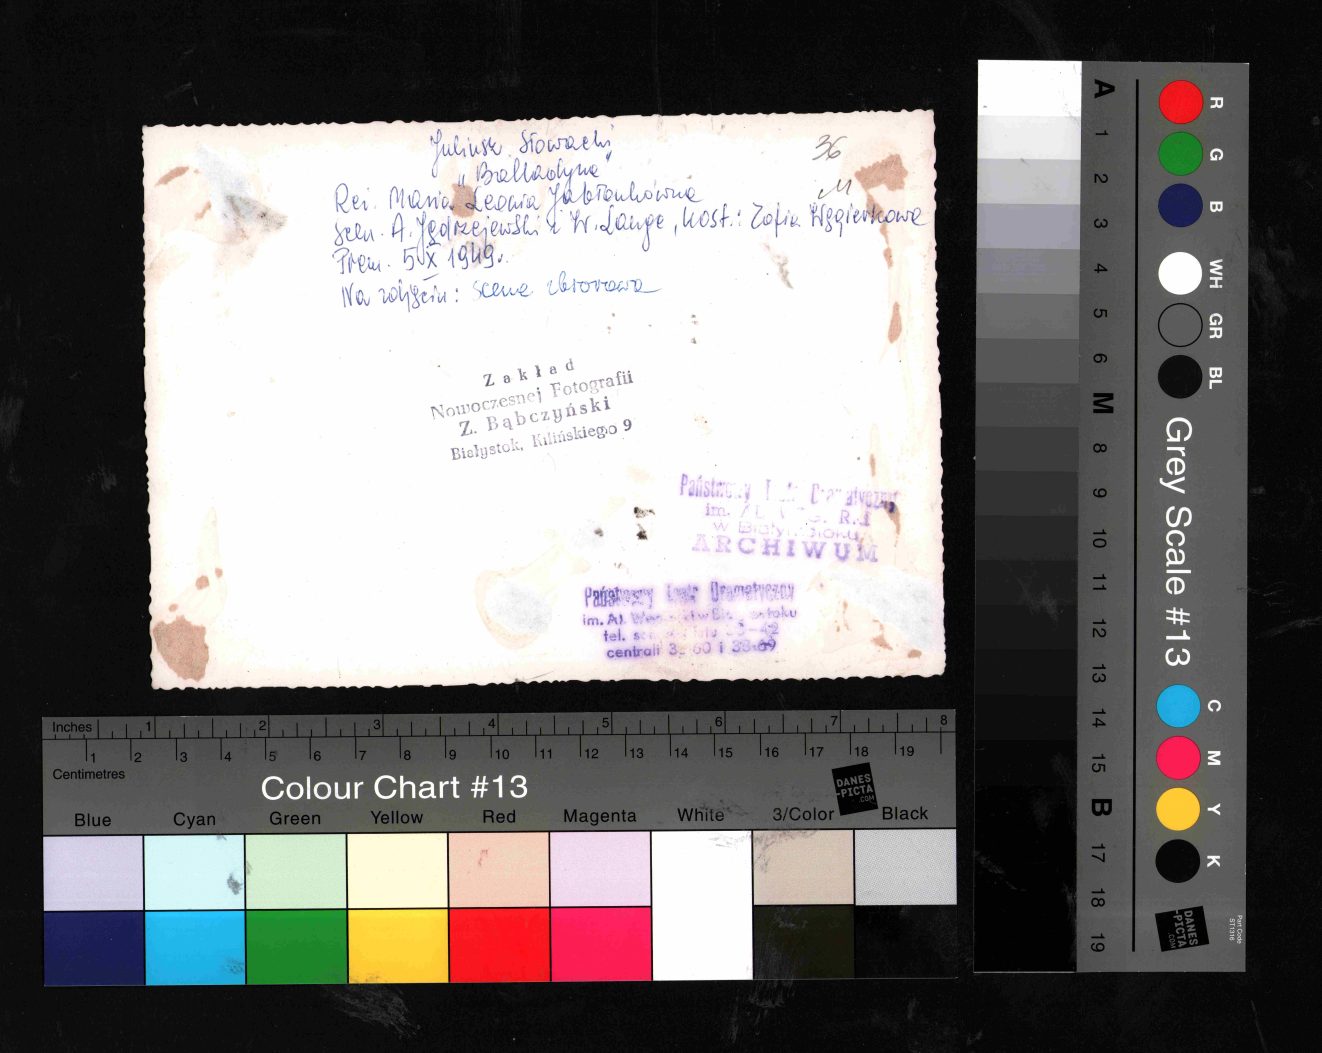 Juliusz Słowacki
"Balladyna"
Reż. Maria Leonia Jabłonkówna
Scen. A. Jędrzejewski i W. Lange, kost.: Zofia Węgierkowa
Prem. 5 X 1949r.
Na zdjęciu: scena zbiorowa
36
Zakład
Nowoczesnej Fotografii
Z. Bąbczyński
Białystok, Kilińskiego 9
Państwowy Teatr Dramatyczny
im.
w Białymstoku
ARCHIWUM
Państwowy Teatr Dramatyczny
im. Al. Węgierki w Białymstoku
tel.
centrali
Inches 1 2 3 4 5 6 7 8
1 2 3 4 5 6 7 8 9 10 11 12 13 14 15 16 17 18 19
Centimetres
Colour Chart #13
DANES
-PICTA
.COM
Blue Cyan Green Yellow Red Magenta White 3/Color Black
A 1 2 3 4 5 6 M 8 9 10 11 12 13 14 15 B 17 18 19
R G B WH GR BL
Grey Scale #13
C M Y K
DANES
-PICTA
.COM
Part Code
ST1316